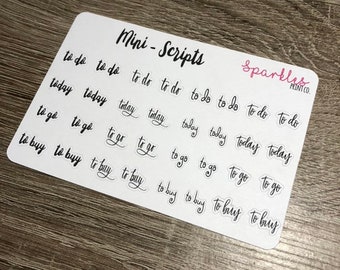 Mini - Scripts
Sparkles
MINT CO.
to do to do to do to do to do to do to do to do
today today today today today today today today
to go to go to go to go to go to go to go to go
to buy to buy to buy to buy to buy to buy to buy to buy